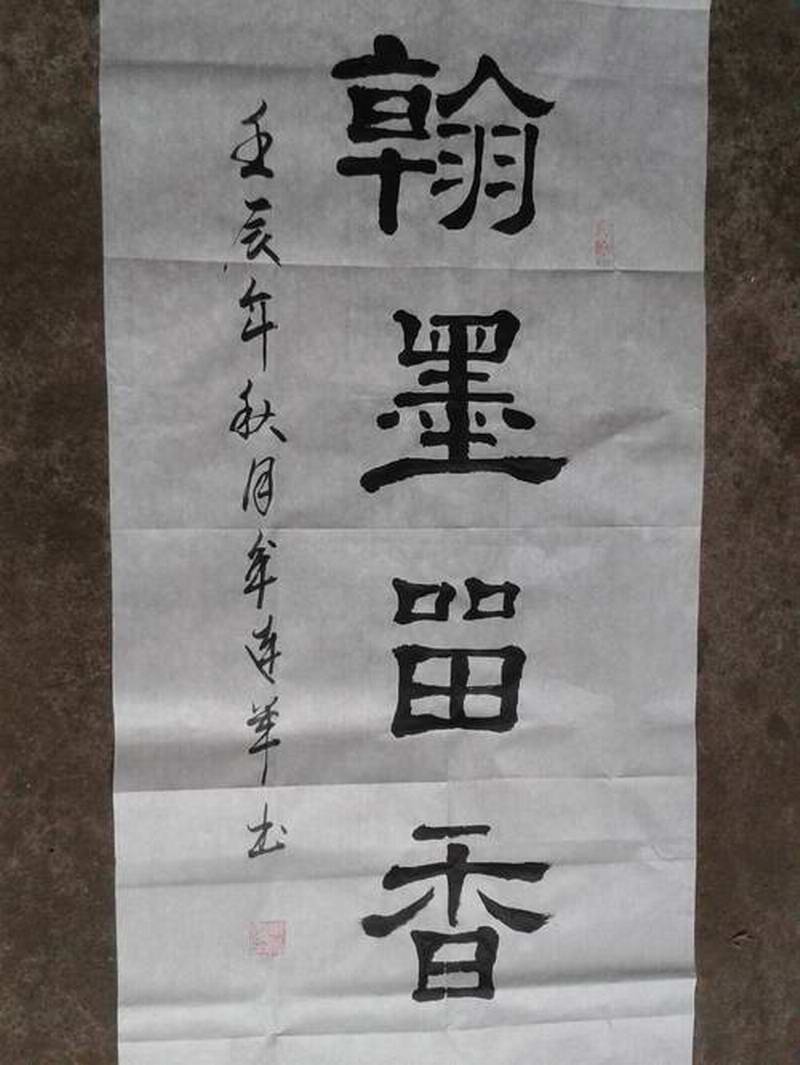 翰墨留香
壬辰年秋月牟连華书